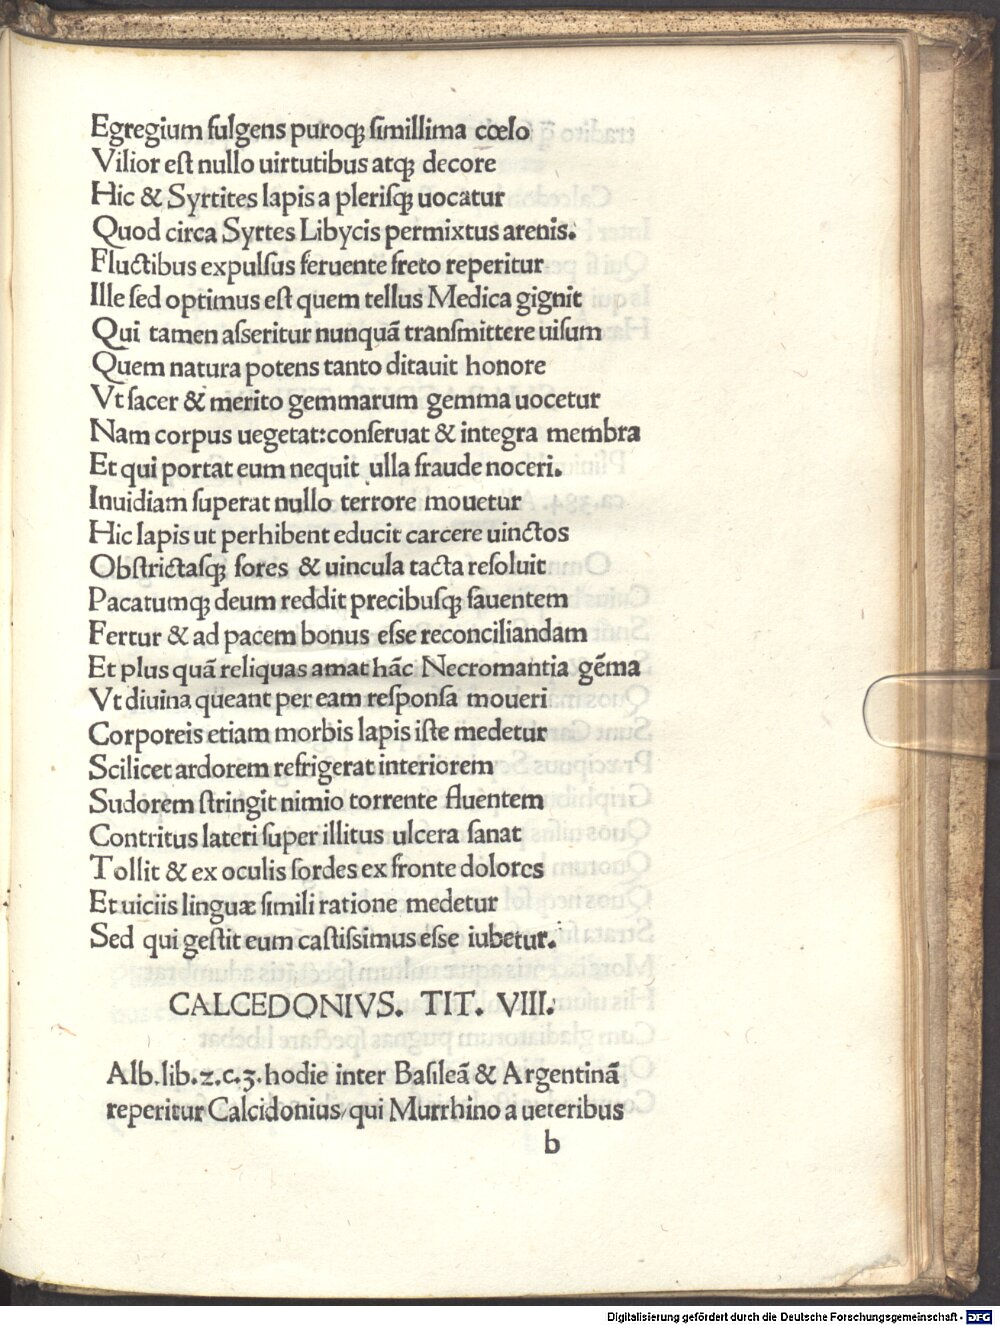 Egregium fulgens puroqꝫ ſimillima cœlo
Vilior eſt nullo uirtutibus atqꝫ decore
Hic & Syrtites lapis a pleriſqꝫ uocatur
Quod circa Syrtes Libycis permixtus arenis.
Fluctibus expulſus feruente freto reperitur
Ille ſed optimus eſt quem tellus Medica gignit
Qui tamen aſſeritur nunquā tranſmittere uiſum
Quem natura potens tanto ditauit honore
Vt ſacer & merito gemmarum gemma uocetur
Nam corpus uegetat:conſeruat & integra membra
Et qui portat eum nequit ulla fraude noceri.
Inuidiam ſuperat nullo terrore mouetur
Hic lapis ut perhibent educit carcere uinctos
Obſtrictaſqꝫ fores & uincula tacta reſoluit
Pacatumqꝫ deum reddit precibuſqꝫ fauentem
Fertur & ad pacem bonus eſſe reconciliandam
Et plus quā reliquas amat hāc Necromantia gēma
Vt diuina queant per eam reſponſa moueri
Corporeis etiam morbis lapis iſte medetur
Scilicet ardorem refrigerat interiorem
Sudorem ſtringit nimio torrente fluentem
Contritus lateri ſuper illitus ulcera ſanat
Tollit & ex oculis ſordes ex fronte dolores
Et uiciis linguæ ſimili ratione medetur
Sed qui geſtit eum caſtiſſimus eſſe iubetur.
CALCEDONIVS. TIT. VIII.
Alb.lib.2.c.3.hodie inter Baſileā & Argentinā
reperitur Calcidonius/qui Murrhino a ueteribus
b
Digitalisierung gefördert durch die Deutsche Forschungsgemeinschaft - DFG